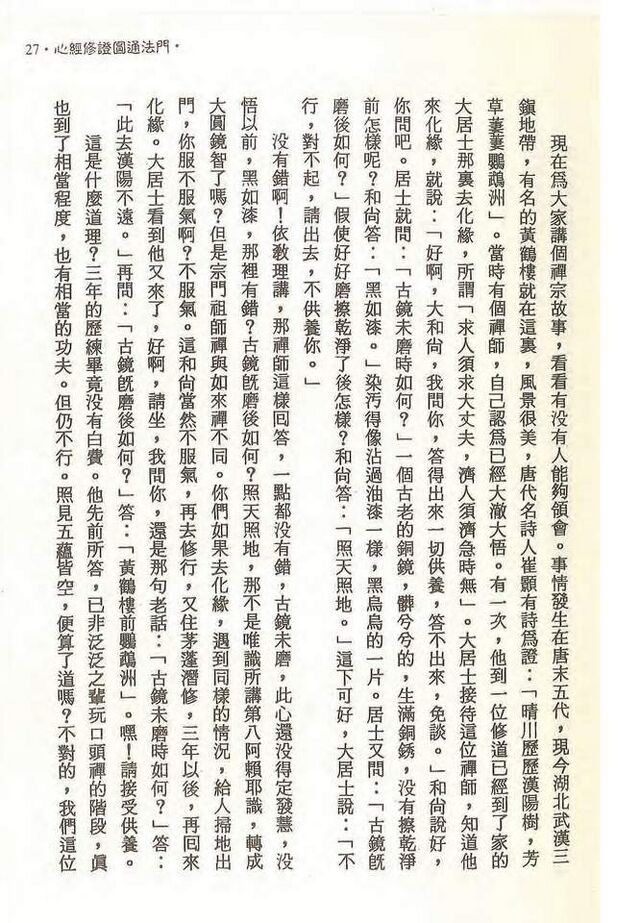 27．心經修證圓通法門．
現在爲大家講個禪宗故事，看看有没有人能夠領會。事情發生在唐末五代，現今湖北武漢三
鎭地帶，有名的黃鶴樓就在這裏，風景很美，唐代名詩人崔顥有詩爲證：「晴川歷歷漢陽樹，芳
草萋萋鸚鵡洲」。當時有個禪師，自己認爲已經大澈大悟。有一次，他到一位修道已經到了家的
大居士那裏去化緣，所謂「求人須求大丈夫，濟人須濟急時無」。大居士接待這位禪師，知道他
來化緣，就說：「好啊，大和尚，我問你，答得出來一切供養，答不出來，免談。」和尚說好，
你問吧。居士就問：「古鏡未磨時如何？」一個古老的銅鏡，髒兮兮的，生滿銅銹，没有擦乾淨
前怎樣呢？和尚答：「黑如漆。」染汚得像沾過油漆一樣，黑烏烏的一片。居士又問：「古鏡旣
磨後如何？」假使好好磨擦乾淨了後怎樣？和尚答：「照天照地。」這下可好，大居士說：「不
行，對不起，請出去，不供養你。」
没有錯啊！依敎理講，那禪師這樣回答，一點都没有錯，古鏡未磨，此心還没得定發慧，没
悟以前，黑如漆，那裡有錯？古鏡旣磨後如何？照天照地，那不是唯識所講第八阿賴耶識，轉成
大圓鏡智了嗎？但是宗門祖師禪與如來禪不同。你們如果去化緣，遇到同樣的情況，給人掃地出
門，你服不服氣啊？不服氣。這和尚當然不服氣，再去修行，又住茅蓬潛修，三年以後，再回來
化緣。大居士看到他又來了，好啊，請坐，我問你，還是那句老話：「古鏡未磨時如何？」答：
「此去漢陽不遠。」再問：「古鏡旣磨後如何？」答：「黃鶴樓前鸚鵡洲」。嘿！請接受供養。
這是什麼道理？三年的歷練畢竟没有白費。他先前所答，已非泛泛之輩玩口頭禪的階段，眞
也到了相當程度，也有相當的功夫。但仍不行。照見五蘊皆空，便算了道嗎？不對的，我們這位